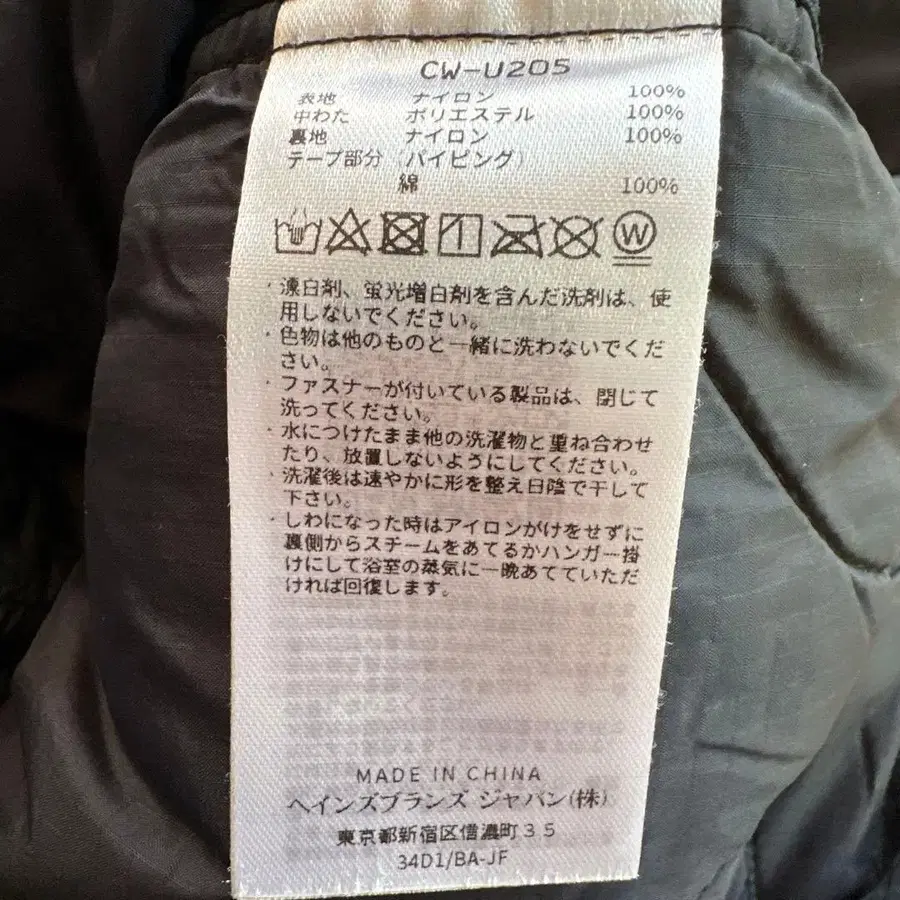 CW-U205
表地 ナイロン 100%
中わた ポリエステル 100%
裏地 ナイロン 100%
テープ部分 (パイピング)
綿 100%
W
・漂白剤、蛍光増白剤を含んだ洗剤は、使
用しないでください。
・色物は他のものと一緒に洗わないでくだ
さい。
・ファスナーが付いている製品は、閉じて
洗ってください。
・水につけたまま他の洗濯物と重ね合わせ
たり、放置しないようにしてください。
・洗濯後は速やかに形を整え日陰で干して
下さい。
・しわになった時はアイロンがけをせずに
裏側からスチームをあてるかハンガー掛
けにして浴室の蒸気に一晩あてていただ
ければ回復します。
MADE IN CHINA
ヘインズブランズ ジャパン(株)
東京都新宿区信濃町35
34D1/BA-JF